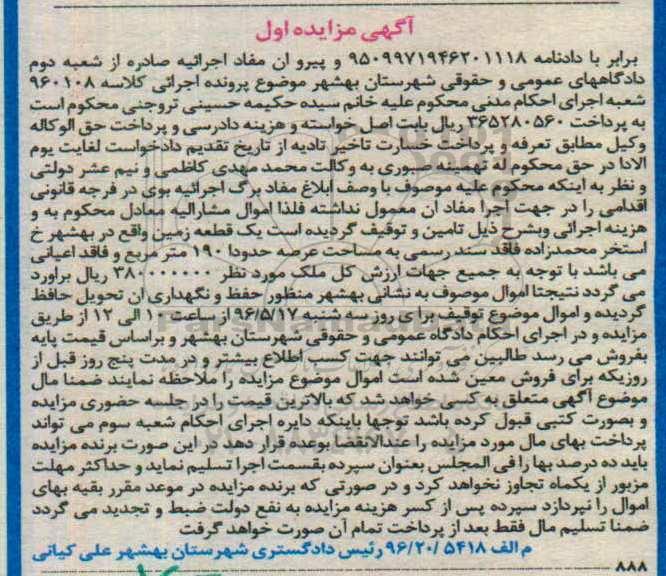 آگهی مزایده اول
برابر با دادنامه ۹۵۰۹۹۷۱۹۴۶۲۰۱۱۱۸ و پیرو ان مفاد اجرائیه صادره از شعبه دوم
دادگاههای عمومی و حقوقی شهرستان بهشهر موضوع پرونده اجرائی کلاسه ۹۶۰۱۰۸
شعبه اجرای احکام مدنی محکوم علیه خانم سیده حکیمه حسینی تروجنی محکوم است
به پرداخت ۳۶۵۲۸۰۵۶۰ ریال بابت اصل خواسته و هزینه دادرسی و پرداخت حق الوکاله
وکیل مطابق تعرفه و پرداخت خسارت تاخیر تادیه از تاریخ تقدیم دادخواست لغایت یوم
الادا در حق محکوم له تهمینه صبوری به وکالت محمد مهدی کاظمی و نیم عشر دولتی
و نظر به اینکه محکوم علیه موصوف با وصف ابلاغ مفاد برگ اجرائیه بوی در فرجه قانونی
اقدامی را در جهت اجرا مفاد ان معمول نداشته فلذا اموال مشارالیه معادل محکوم به و
هزینه اجرائی وبشرح ذیل تامین و توقیف گردیده است یک قطعه زمین واقع در بهشهر خ
استخر محمدزاده فاقد سند رسمی به مساحت عرصه حدودا ۱۹۰ متر مربع و فاقد اعیانی
می باشد با توجه به جمیع جهات ارزش کل ملک مورد نظر ۳۸۰۰۰۰۰۰۰ ریال براورد
می گردد نتیجتا اموال موصوف به نشانی بهشهر منظور حفظ و نگهداری ان تحویل حافظ
گردیده و اموال موضوع توقیف برای روز سه شنبه ۹۶/۵/۱۷ از ساعت ۱۰ الی ۱۲ از طریق
مزایده و در اجرای احکام دادگاه عمومی و حقوقی شهرستان بهشهر و براساس قیمت پایه
بفروش می رسد طالبین می توانند جهت کسب اطلاع بیشتر و در مدت پنج روز قبل از
روزیکه برای فروش معین شده است اموال موضوع مزایده را ملاحظه نمایند ضمنا مال
موضوع آگهی متعلق به کسی خواهد شد که بالاترین قیمت را در جلسه حضوری مزایده
و بصورت کتبی قبول کرده باشد توجها باینکه دایره اجرای احکام شعبه سوم می تواند
پرداخت بهای مال مورد مزایده را عندالانقضا بوعده قرار دهد در این صورت برنده مزایده
باید ده درصد بها را فی المجلس بعنوان سپرده بقسمت اجرا تسلیم نماید و حداکثر مهلت
مزبور از یکماه تجاوز نخواهد کرد و در صورتی که برنده مزایده در موعد مقرر بقیه بهای
اموال را نپردازد سپرده پس از کسر هزینه مزایده به نفع دولت ضبط و تجدید می گردد
ضمنا تسلیم مال فقط بعد از پرداخت تمام آن صورت خواهد گرفت
م الف ۵۴۱۸ /۹۶/۲۰ رئیس دادگستری شهرستان بهشهر علی کیانی
۸۸۸